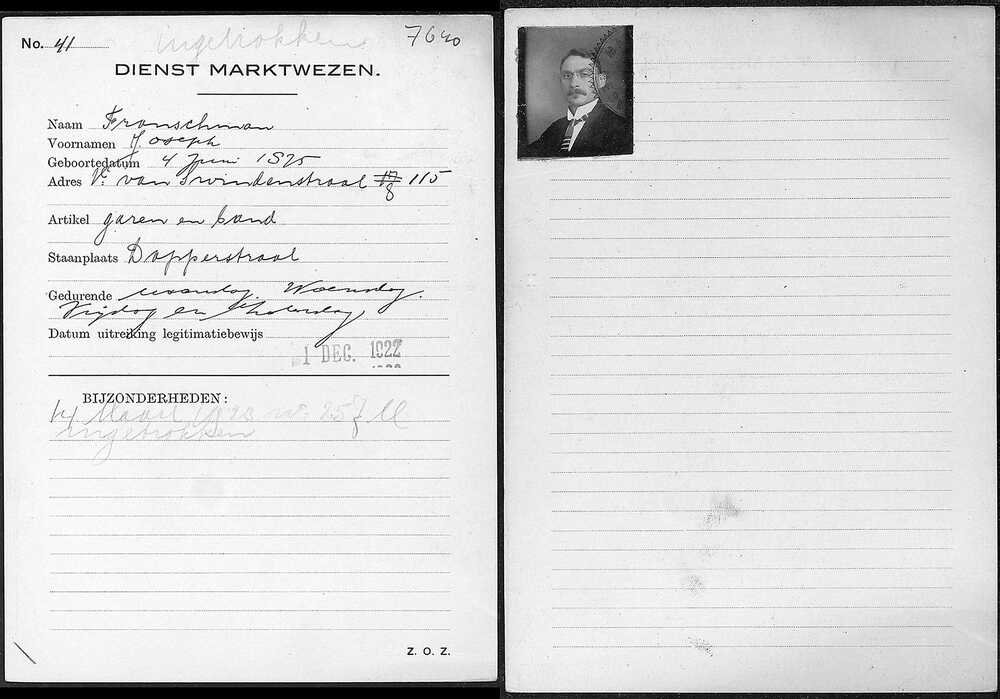 No. 41
ingetrokken
7640
DIENST MARKTWEZEN.
Naam Franschman
Voornamen Joseph
Geboortedatum 4 Juni 1875
Adres v. van Swindenstraat 115
Artikel garen en band
Staanplaats Dapperstraat
Gedurende maandag, Woensdag,
Vrijdag en Zaterdag,
Datum uitreiking legitimatiebewijs
1 DEC. 1922
BIJZONDERHEDEN:
14 Maart 1923
ingetrokken
Z. O. Z.